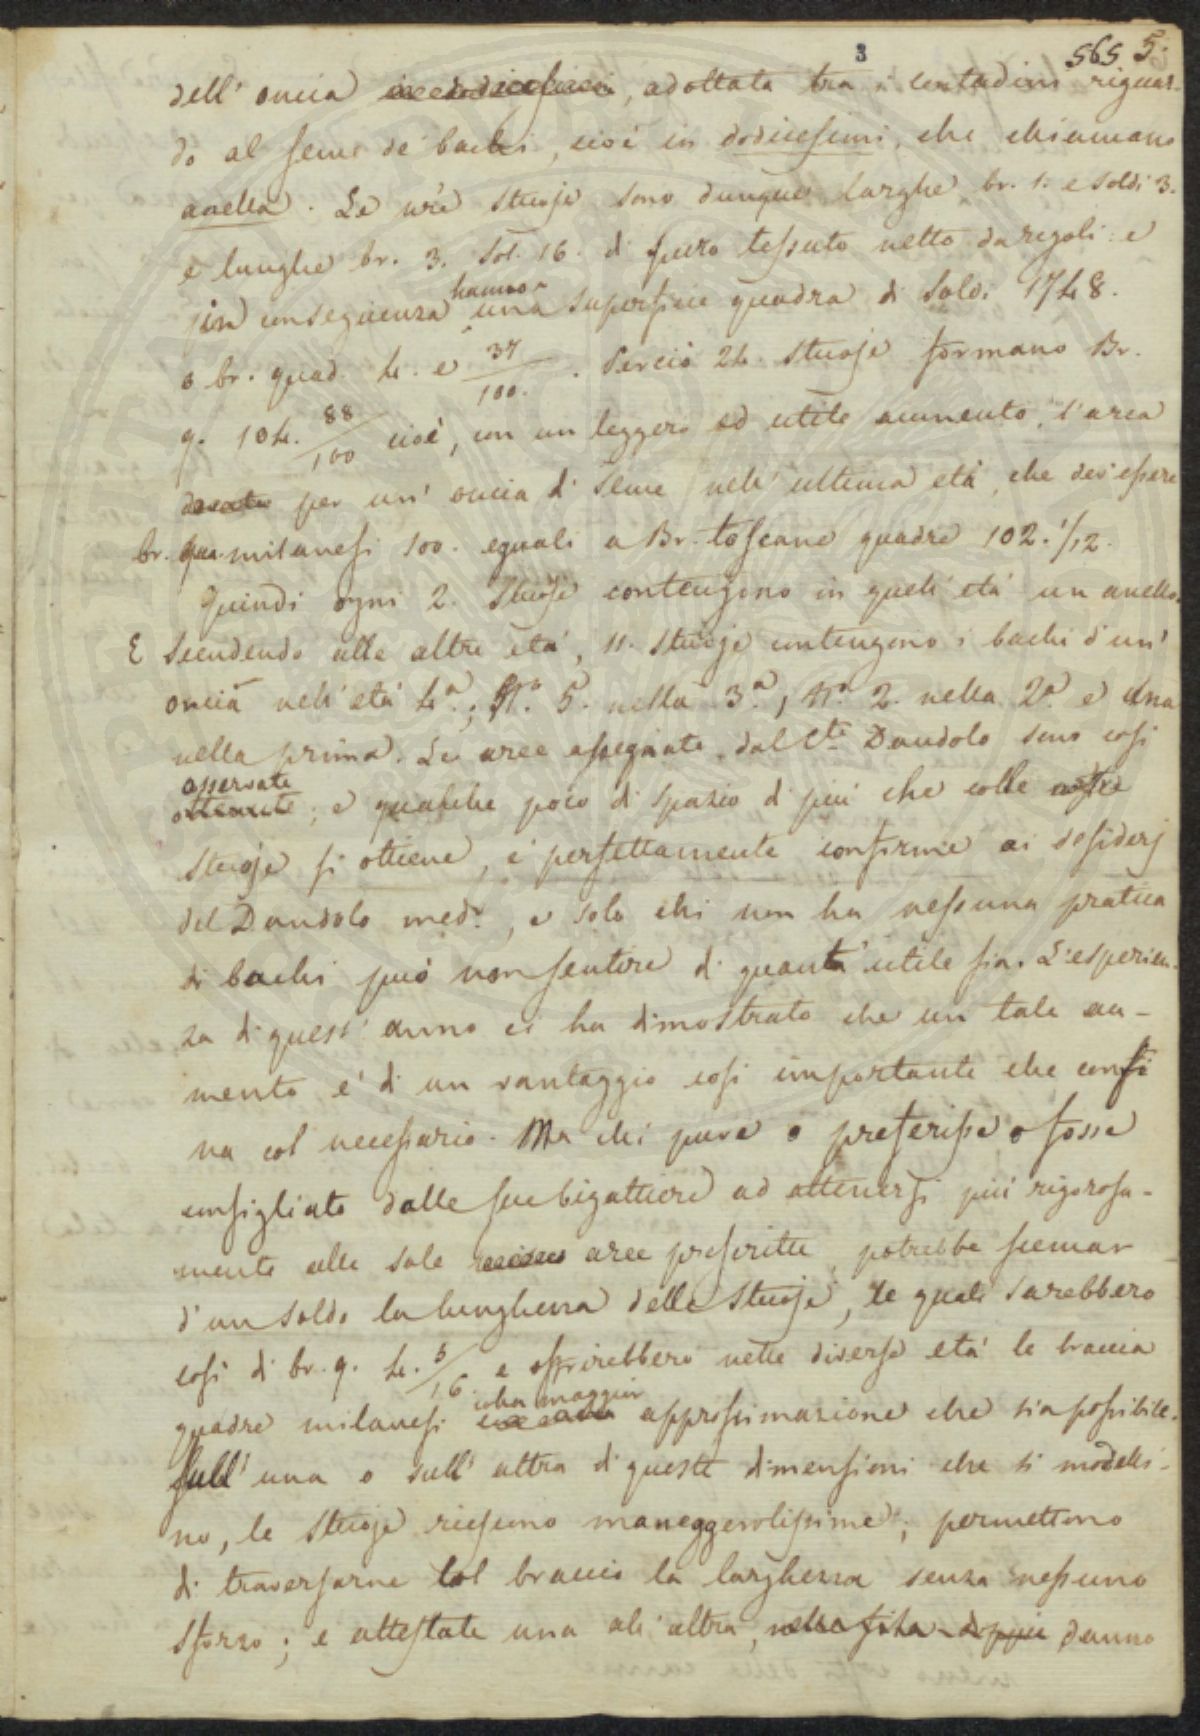 3
565 5.
dell' oncia in dodicesimi, adottata tra i contadini riguar-
do al seme de' bachi, cioè in dodicesimi, che chiamano
anella. Le nře stuoje sono dunque larghe br. 1. e soldi 3.
e lunghe br. 3. sol. 16. di puro tessuto netto da regoli: e
in conseguenza hanno una superficie quadra di soldi 1748.
o br. quad. 4. e 37/100. Perciò 24. stuoje formano Br.
q. 104. 88/100 cioè, con un leggero ed utile aumento, l'area
per un' oncia di seme nell' ultima età, che dev' essere
br. qua. milanesi 100. eguali a Br. toscane quadre 102. 1/12.
Quindi ogni 2. stuoje contengono in quell' età un anello.
E scendendo alle altre età, 11. stuoje contengono i bachi d'un'
oncia nell' età 4.ª; N.º 5. nella 3.ª, N.º 2. nella 2.ª e una
nella prima. Le aree assegnate dal C.te Dandolo sono così
osservate
ottenute; e qualche poco di spazio di più che colle nostre
stuoje si ottiene, è perfettamente conforme ai desiderj
del Dandolo med.º, e solo chi non ha nessuna pratica
di bachi può non sentire di quanta utile sia. L'esperien-
za di quest' anno ci ha dimostrato che un tale au-
mento è di un vantaggio così importante che confi
na col necessario. Ma chi pure o preferisse o fosse
consigliato dalle sue bigattiere ad attenersi più rigorosa-
mente alle sole aree prescritte, potrebbe scemar
d'un soldo la lunghezza delle stuoje, le quali sarebbero
così di br. q. 4. 5/16. e offrirebbero nelle diverse età le braccia
quadre milanesi colla maggior approssimazione che sia possibile.
Sull' una o sull' altra di queste dimensioni che si modelli-
no, le stuoje riescono maneggevolissime; permettono
di traversarne col braccio la larghezza senza nessuno
sforzo; e attestate una all' altra, nella fila doppia danno